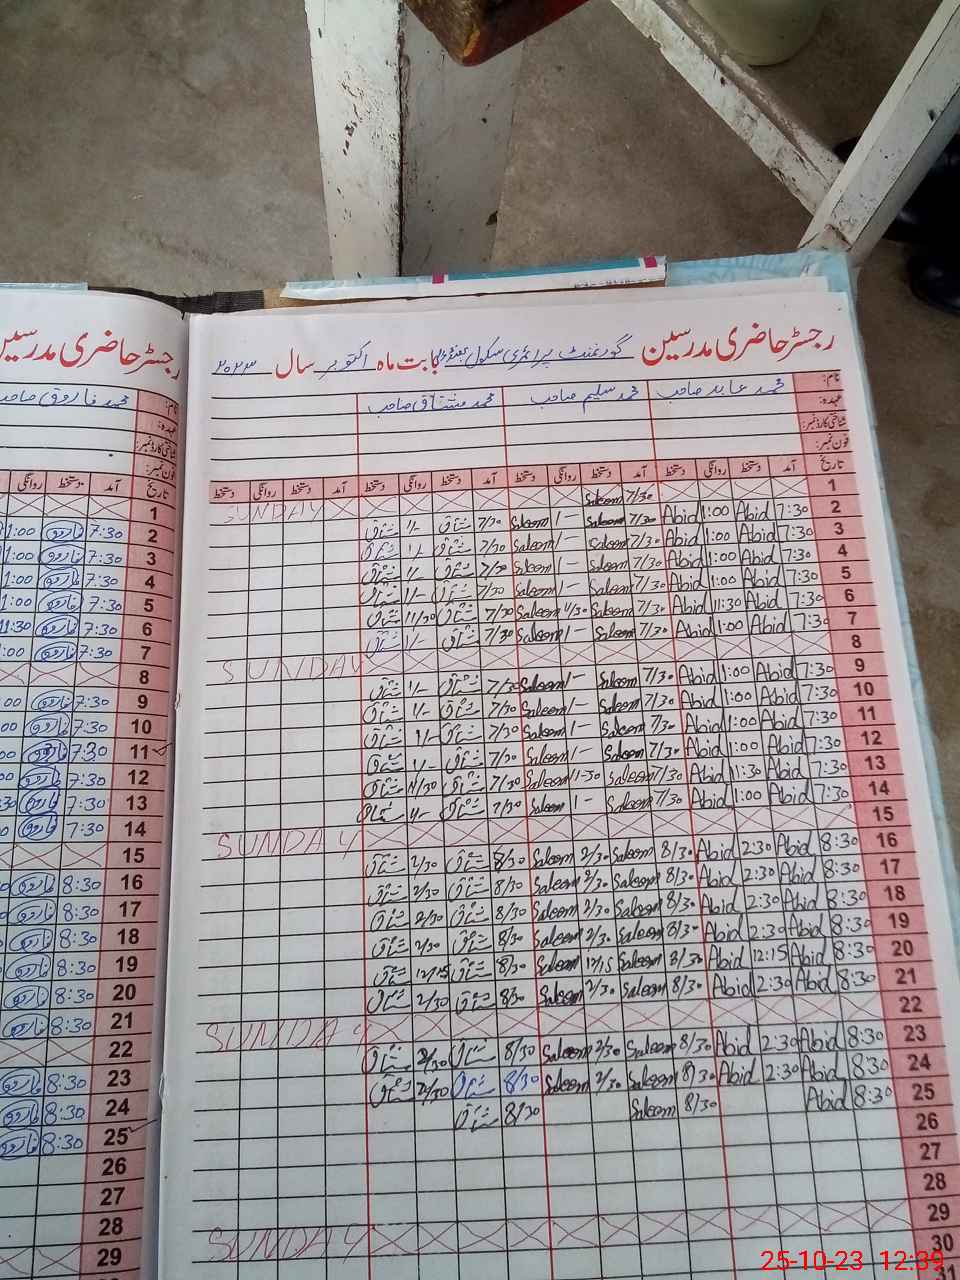 رجسٹر حاضری مدرسین گورنمنٹ پرائمری سکول بابت ماہ اکتوبر سال ۲۰۲۳
نام: محمد عابد صاحب محمد سلیم صاحب محمد مشتاق صاحب
عہدہ:
شناختی کارڈ نمبر:
فون نمبر:
تاریخ آمد دستخط روانگی دستخط آمد دستخط روانگی دستخط آمد دستخط روانگی دستخط آمد دستخط روانگی دستخط
1 7/30 Saleem SUNDAY
2 7:30 Abid 1:00 Abid 7/30 Saleem 1- Saleem 7/30 مشتاق 1/- مشتاق
3 7:30 Abid 1:00 Abid 7/30 Saleem 1- Saleem 7/30 مشتاق 1/- مشتاق
4 7:30 Abid 1:00 Abid 7/30 Saleem 1- Saleem 7/30 مشتاق 1/- مشتاق
5 7:30 Abid 1:00 Abid 7/30 Saleem 1- Saleem 7/30 مشتاق 1/- مشتاق
6 7:30 Abid 11:30 Abid 7/30 Saleem 11/30 Saleem 7/30 مشتاق 11/30 مشتاق
7 7:30 Abid 1:00 Abid 7/30 Saleem 1- Saleem 7/30 مشتاق 1/- مشتاق
8 SUNDAY
9 7:30 Abid 1:00 Abid 7/30 Saleem 1- Saleem 7/30 مشتاق 1/- مشتاق
10 7:30 Abid 1:00 Abid 7/30 Saleem 1- Saleem 7/30 مشتاق 1/- مشتاق
11 7:30 Abid 1:00 Abid 7/30 Saleem 1- Saleem 7/30 مشتاق 1/- مشتاق
12 7:30 Abid 1:00 Abid 7/30 Saleem 1- Saleem 7/30 مشتاق 1/- مشتاق
13 7:30 Abid 11:30 Abid 7/30 Saleem 11-30 Saleem 7/30 مشتاق 11/30 مشتاق
14 7:30 Abid 1:00 Abid 7/30 Saleem 1- Saleem 7/30 مشتاق 1/- مشتاق
15 SUNDAY
16 8:30 Abid 2:30 Abid 8/30 Saleem 2/30 Saleem 8/30 مشتاق 2/30 مشتاق
17 8:30 Abid 2:30 Abid 8/30 Saleem 2/30 Saleem 8/30 مشتاق 2/30 مشتاق
18 8:30 Abid 2:30 Abid 8/30 Saleem 2/30 Saleem 8/30 مشتاق 2/30 مشتاق
19 8:30 Abid 2:30 Abid 8/30 Saleem 2/30 Saleem 8/30 مشتاق 2/30 مشتاق
20 8:30 Abid 12:15 Abid 8/30 Saleem 12/15 Saleem 8/30 مشتاق 12/15 مشتاق
21 8:30 Abid 2:30 Abid 8/30 Saleem 2/30 Saleem 8/30 مشتاق 2/30 مشتاق
22 SUNDAY
23 8:30 Abid 2:30 Abid 8/30 Saleem 2/30 Saleem 8/30 مشتاق 2/30 مشتاق
24 8:30 Abid 2:30 Abid 8/30 Saleem 2/30 Saleem 8/30 مشتاق 2/30 مشتاق
25 8:30 Abid 8/30 Saleem 8/30 مشتاق
26
27
28
29 SUNDAY
30
31
رجسٹر حاضری مدرسین
نام: محمد فاروق صاحب
عہدہ:
شناختی کارڈ نمبر:
فون نمبر:
تاریخ آمد دستخط روانگی
1
2 7:30 فاروق 1:00
3 7:30 فاروق 1:00
4 7:30 فاروق 1:00
5 7:30 فاروق 1:00
6 7:30 فاروق 11:30
7 7:30 فاروق :00
8
9 7:30 فاروق 00
10 7:30 فاروق 00
11 7:30 فاروق 00
12 7:30 فاروق 00
13 7:30 فاروق 30
14 7:30 فاروق 0
15
16 8:30 فاروق
17 8:30 فاروق
18 8:30 فاروق
19 8:30 فاروق
20 8:30 فاروق
21 8:30 فاروق
22
23 8:30 فاروق
24 8:30 فاروق
25 8:30 فاروق
26
27
28
29
25-10-23 12:39